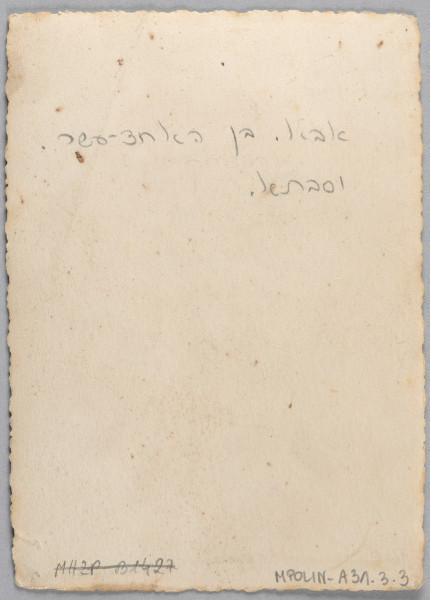 אבא. בן האחד-עשר.
וסבתא.
MHŻP B1427
MPOLIN-A31.3.3